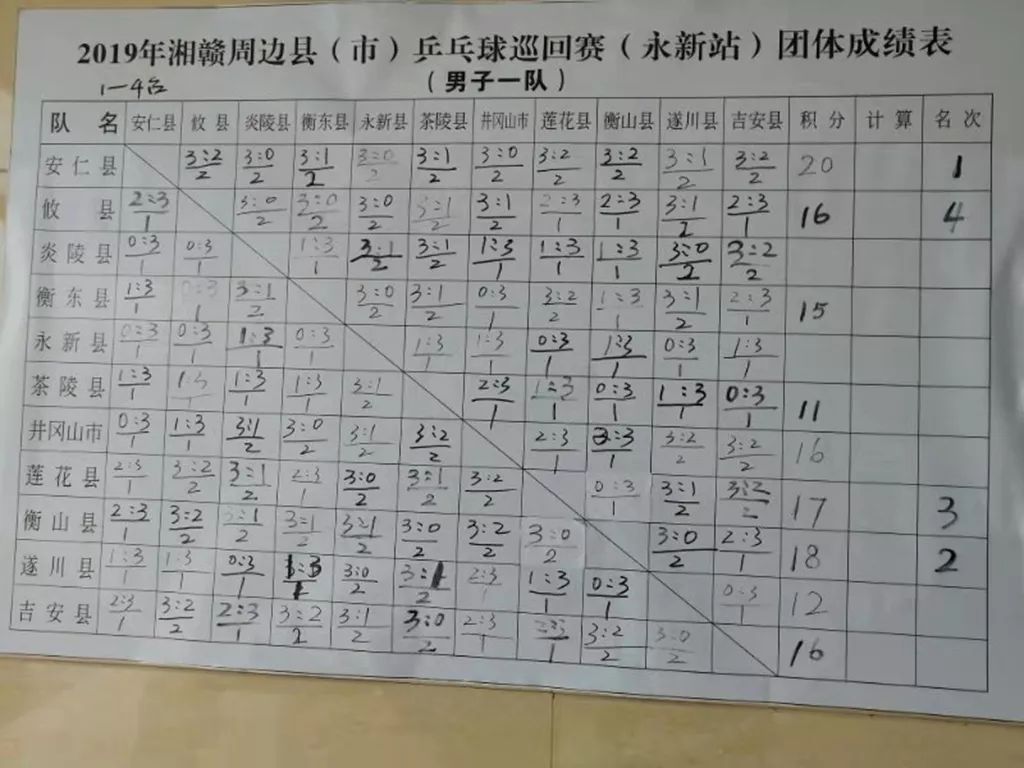 2019年湘赣周边县（市）乒乓球巡回赛（永新站）团体成绩表
1-4名 （男子一队）
队 名 安仁县 攸 县 炎陵县 衡东县 永新县 茶陵县 井冈山市 莲花县 衡山县 遂川县 吉安县 积 分 计 算 名 次
安仁县 3:2/2 3:0/2 3:1/2 3:0/2 3:1/2 3:0/2 3:2/2 3:2/2 3:1/2 3:2/2 20 1
攸 县 2:3/1 3:0/2 3:0/2 3:0/2 3:1/2 3:1/2 2:3/1 2:3/1 3:1/2 2:3/1 16 4
炎陵县 0:3/1 0:3/1 1:3/1 3:1/2 3:1/2 1:3/1 1:3/1 1:3/1 3:0/2 3:2/2
衡东县 1:3/1 0:3/1 3:1/2 3:0/2 3:1/2 0:3/1 3:2/2 1:3/1 3:1/2 2:3/1 15
永新县 0:3/1 0:3/1 1:3/1 0:3/1 1:3/1 1:3/1 0:3/1 1:3/1 0:3/1 1:3/1
茶陵县 1:3/1 1:3/1 1:3/1 1:3/1 3:1/2 2:3/1 1:3/1 0:3/1 1:3/1 0:3/1 11
井冈山市 0:3/1 1:3/1 3:1/2 3:0/2 3:1/2 3:2/2 2:3/1 :3/1 3:2/2 3:2/2 16
莲花县 2:3/1 3:2/2 3:1/2 2:3/1 3:0/2 3:1/2 3:2/2 0:3/1 3:1/2 3:2/2 17 3
衡山县 2:3/1 3:2/2 3:1/2 3:1/2 3:1/2 3:0/2 3:2/2 3:0/2 3:0/2 2:3/1 18 2
遂川县 1:3/1 1:3/1 0:3/1 1:3/1 3:0/2 3:1/2 2:3/1 1:3/1 0:3/1 0:3/1 12
吉安县 2:3/1 3:2/2 2:3/1 3:2/2 3:1/2 3:0/2 2:3/1 /1 3:2/2 3:0/2 16